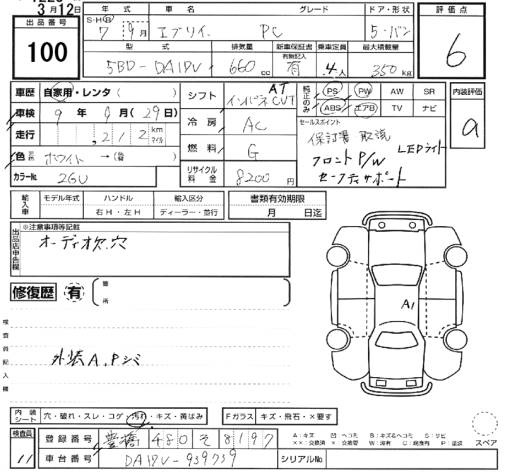 3月12日
出品番号
100
年式 車名 グレード ドア・形状
S・H・R 7年9月 エブリイ PC 5・バン
型式 排気量 新車保証書 乗車定員 最大積載量
有無記入
5BD-DA17V 660cc 有 4人 350kg
評価点
6
車歴 自家用・レンタ( )
車検 9年9月(29日)
走行 ,212 km マイル
色 ホワイト→(替 )
カラーNo. 26U
シフト AT インパネ CVT
冷房 AC
燃料 G
リサイクル料金 8200円
純正のみ PS PW AW SR
ABS エアB TV ナビ
セールスポイント
保証書 取説 LEDライト
フロントP/W
セーフティサポート
内装評価
a
輸入車 モデル年式 ハンドル 輸入区分
右H・左H ディーラー・並行
書類有効期限
月 日迄
出品店申告欄
※注意事項等記載
オーディオ欠.穴
修復歴 有 箇所
検査員記入欄
外装A.P
A1
内装シート 穴・破れ・スレ・コゲ・汚れ・キズ・黄ばみ Fガラス キズ・飛石・×要す
検査員
11
登録番号 豊橋 480 そ 8197
車台番号 DA17V-939759 シリアルNo.
A:キズ 凹 ヘコミ B:キズ&ヘコミ S:サビ
××:交換済 ×:交換等 W:波有 C:腐食有 P:塗装
スペア